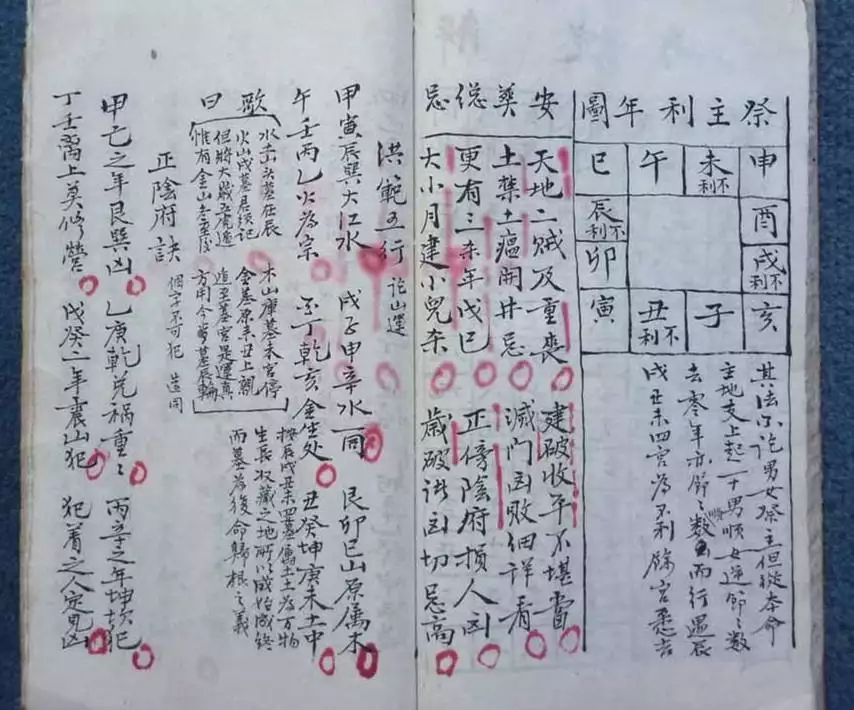 祭主利年圖
申
未不利
午
巳
酉
辰不利
戌不利
卯
亥
子
丑不利
寅
其法不论男女祭主但從本命
主地支上起一十男順女逆節々數
去零年亦節々數順而行遇辰
戌丑未四宮為不利餘宮悉吉
安葬總忌
天地二賊及重喪 建破收平不堪當
土禁土瘟開井忌 滅門凶敗細詳看
更有三杀年戊巳 正傍陰府損人凶
大小月建小兒杀 歲破诸凶切忌高
洪範五行 论山運
甲寅辰巽大江水 戌子申辛水一同 艮卯巳山原属木
午壬丙乙火為宗 丁乾亥金生处 丑癸坤庚未土中
歌曰
水土墓在辰 木山庫墓未宮停
火山戌墓是記 金墓原来丑上親
但將大五虎遁 追至墓宮是運真
惟有金山冬至后 方用今墓辰輪
按辰戌丑未四墓属土土為万物
生長收藏之地所以成始成终
而墓為後命歸根之義
正陰府訣 個字不可犯 造用
甲己之年艮巽凶 乙庚乾兌禍重々 丙辛之年坤坎犯
丁壬离上莫修營 戊癸二年震山犯 犯着之人定見凶